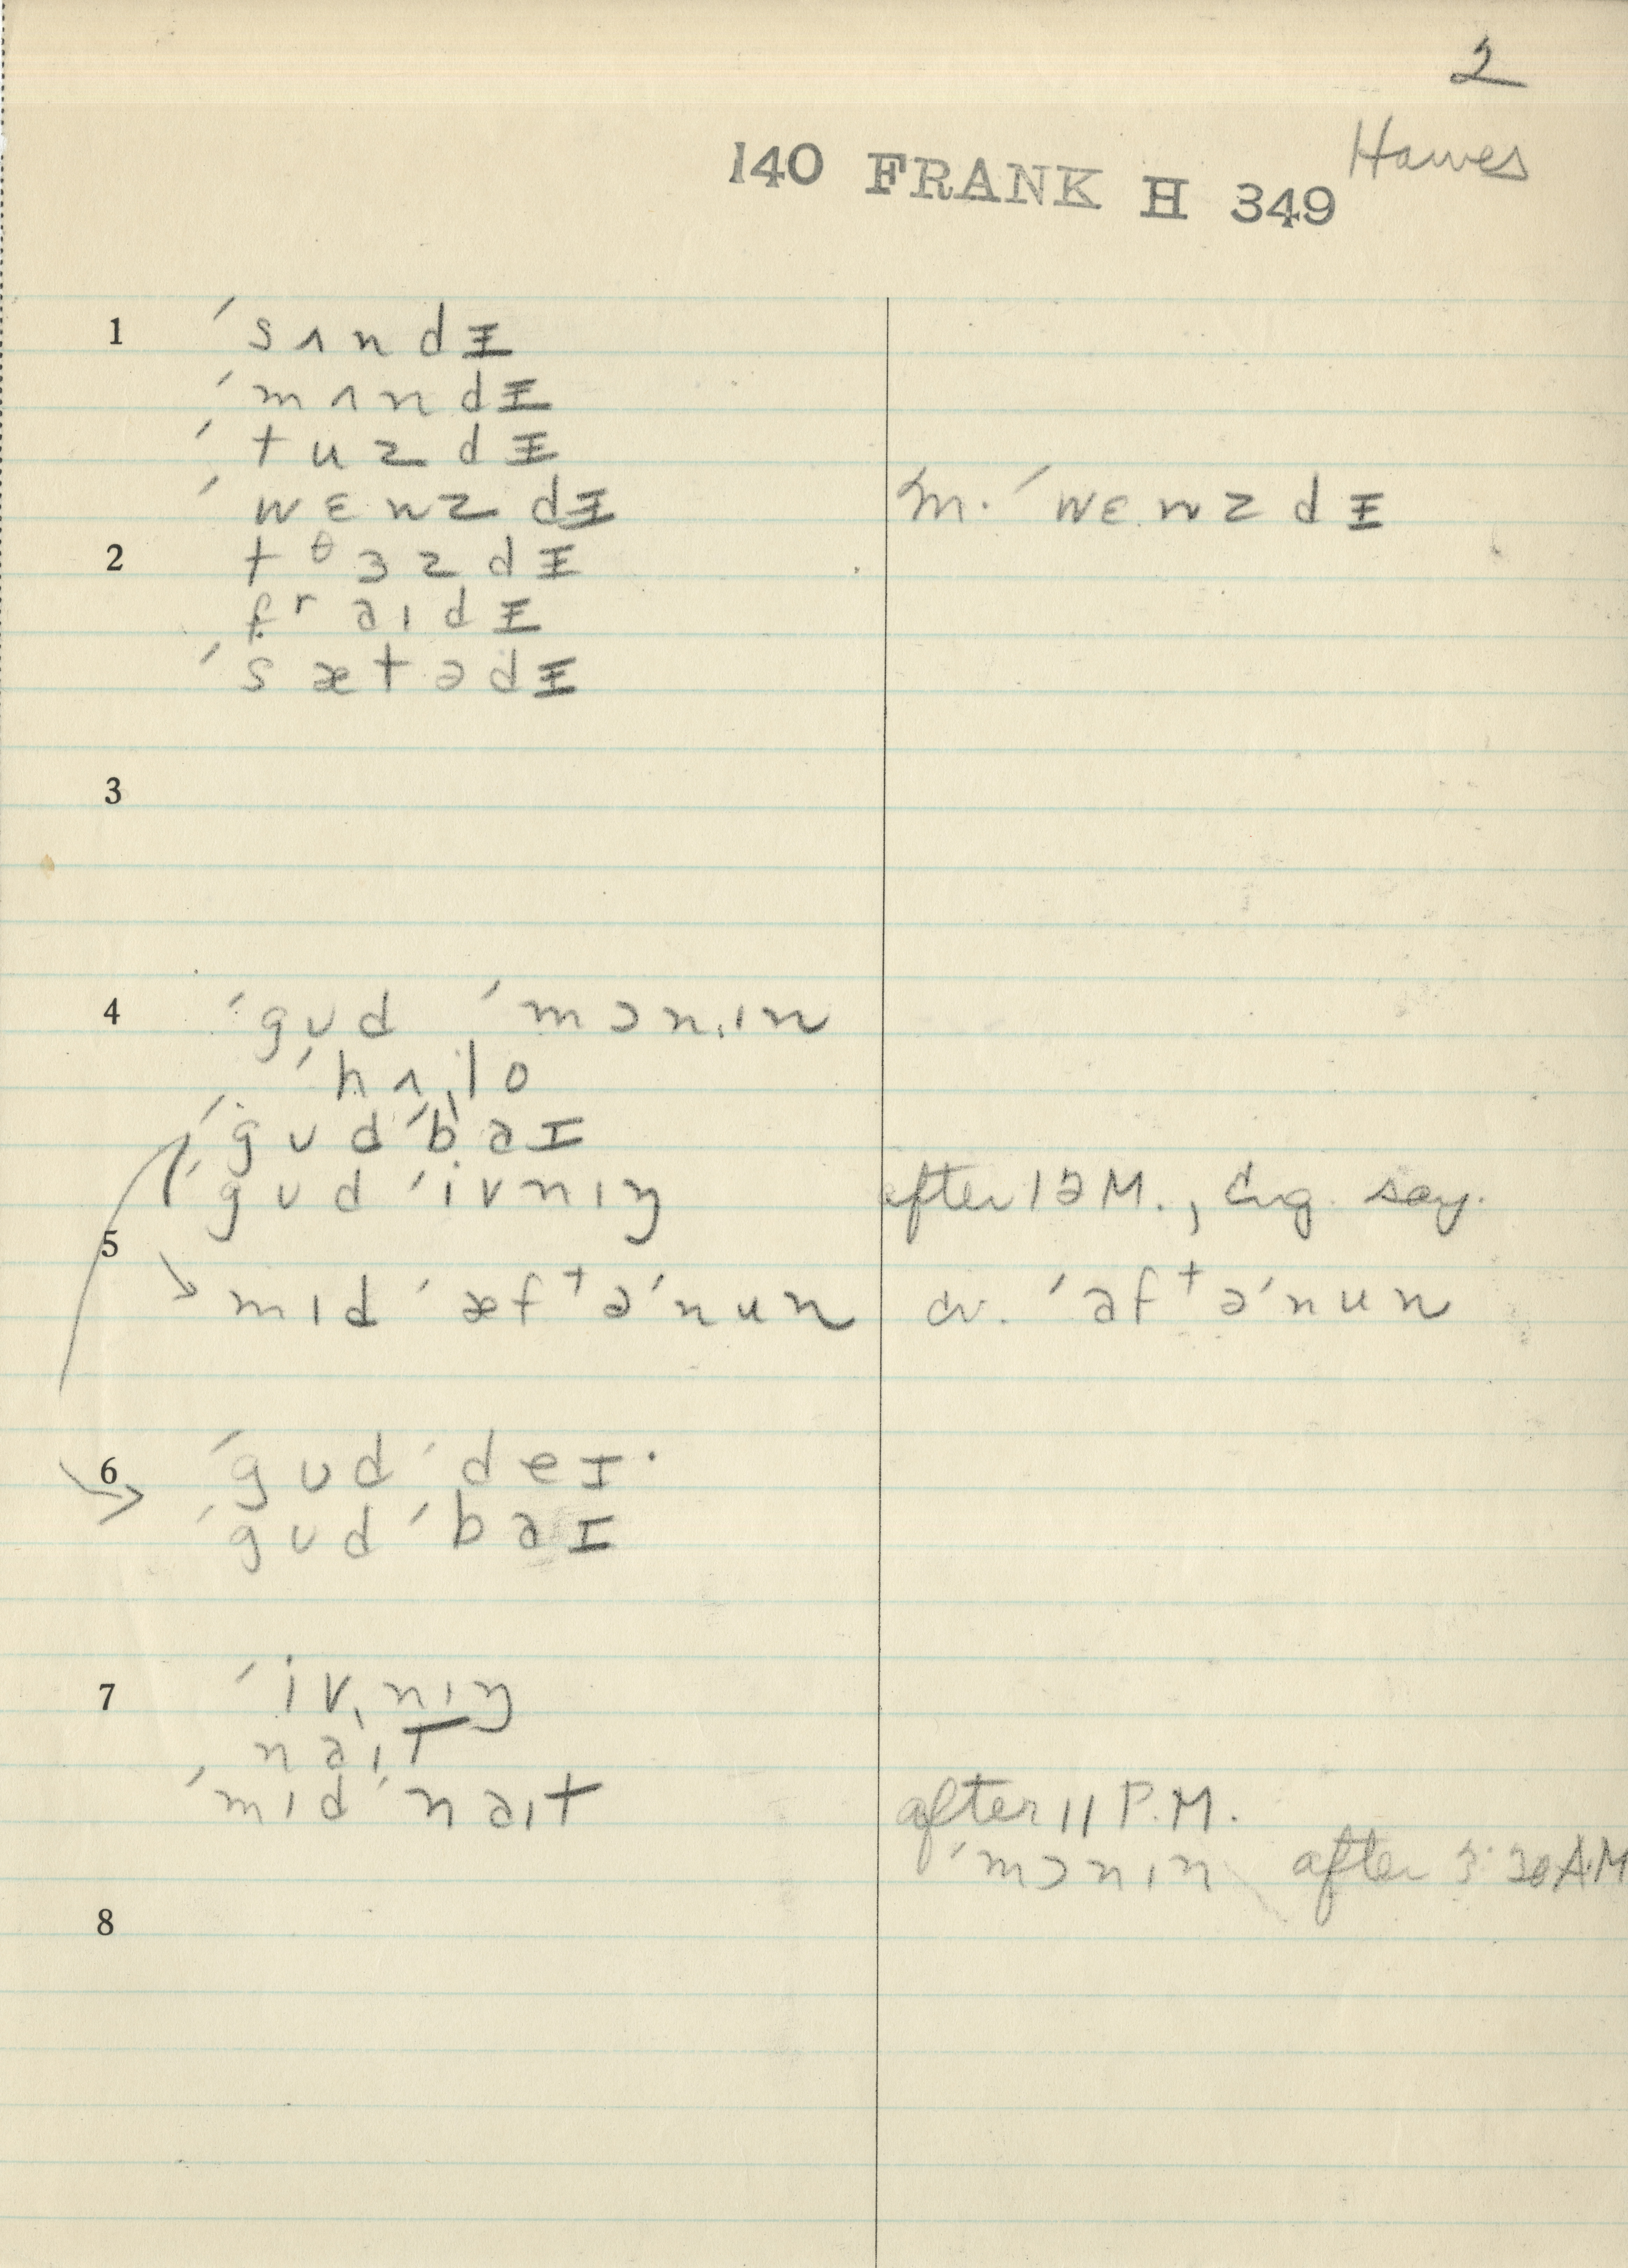 2
Hawes
140 FRANK H 349
1 ˈsʌndᵻ
ˈmʌndᵻ
ˈtuzdᵻ
ˈwɛnzdᵻ m. ˈwɛnzdᵻ
2 tᶿɜzdᵻ
fʳaɪdᵻ
ˈsætədᵻ
3
4 ˈgʊd ˈmɔnˌɪn
ˈhʌˌlo
ˈgʊdˈbaɪ
ˈgʊd ˈivnɪŋ after 12 M.,
5 mɪd ˈæfᵗəˈnun cv. ˈafᵗəˈnun
6 ˈgʊd ˈdeɪ·
ˈgʊd ˈbaɪ
7 ˈivˌnɪŋ
naɪt
ˈmɪd ˈnaɪt after 11 P.M.
ˈmɔnɪn after 3:30 A.M
8